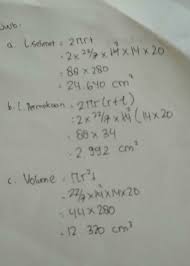 Jwb:
a. L. Selimut = 2πrt
= 2 x 22/7 x 14 x 14 x 20
= 88 x 280
= 24.640 cm²
b. L. Permukaan = 2πr(r+t)
= 2 x 22/7 x 14 (14 x 20
= 88 x 34
= 2.992 cm²
c. Volume = πr²t
= 22/7 x 14 x 14 x 20
= 44 x 280
= 12.320 cm³